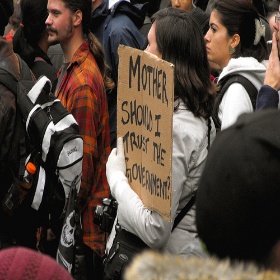 MOTHER
SHOULD I
TRUST THE
GOVERNMENT?